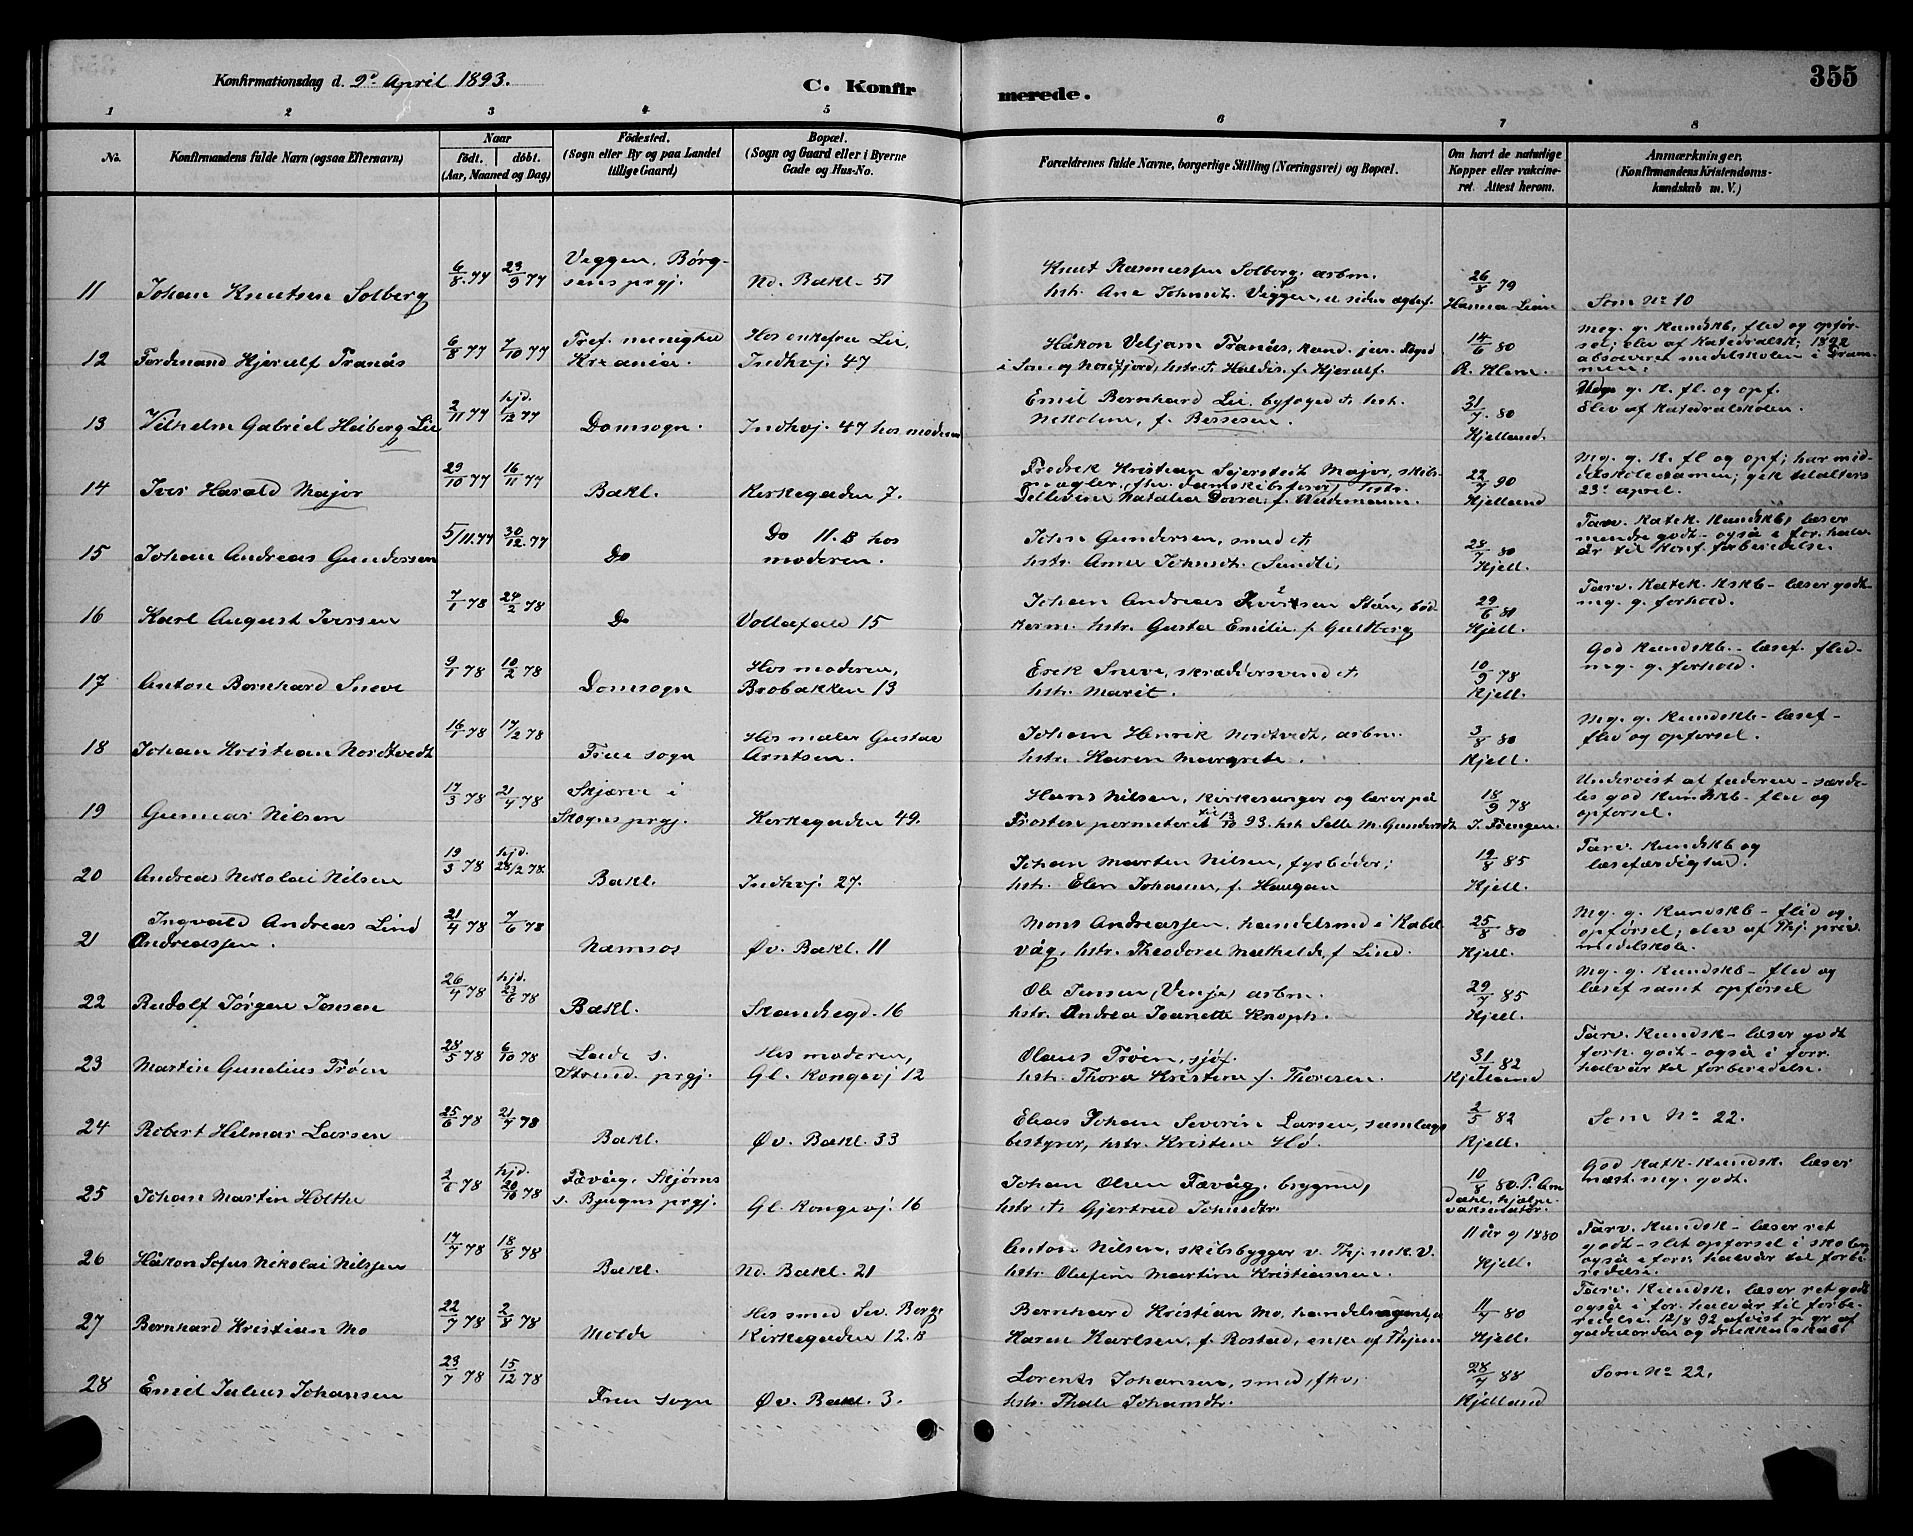 Konfirmationsdag d. 9de April 1893.
C. Konfirmerede.
355
1 2 3 4 5 6 7 8
No.
Konfirmandens fulde Navn (ogsaa Efternavn)
Naar
födt. döbt.
(Aar, Maaned og Dag)
Födested.
(Sogn eller By og paa Landet
tillige Gaard)
Bopæl.
(Sogn og Gaard eller i Byerne
Gade og Hus-No.
Forældrenes fulde Navne, borgerlige Stilling (Næringsvei) og Bopæl.
Om havt de naturlige
Kopper eller vakcine-
ret. Attest herom.
Anmærkninger.
(Konfirmandens Kristendoms-
kundskab m. V.)
11 Johan Knutsen Solberg
6/8 77 23/9 77
Veggen, Börg-
sens prgj.
Nd. Bakl. 51
Knut Rasmussen Solberg, arbm.
hstr. Ane Johnsdtr. Veggen, siden ægtef.
26/8 79
Hanna Lian
Som No 10
12 Ferdinand Hjerulf Tranås
6/8 77 7/10 77
Tref. menighed
Kr.ania.
Hos enkefru Lie,
Indhvj. 47
Håkon Veljam Tranås, kand. jur. foged
i Søn. og Nordfjord, hstr. † Haldis f. Hjerulf.
14/6 80
R. Klem.
Meg. g. kundskb, flid og opfør-
sel; elev af Katedralsk; 1892
absolveret middelskolen i Dram-
men.
13 Vilhelm Gabriel Heiberg Lie
2/11 77 hjd. 1/12 77
Domsogn.
Indhvj. 47 hos moderen
Emil Bernhard Lie, byfoged †, hst.
Nikoline, f. Bessesen.
31/7 80
Kjelland.
Meg. g. K. fl. og opf.
Elev af Katedralskolen.
14 Iver Harald Major
29/10 77 16/11 77
Bakl.
Kirkegaden 7.
Fredrik Kristian Sejersted Major, skibs-
mægler, fhv. damskibsfører, hstr.
Dellevine Natalia Dovra, f. Weidemann.
22/7 90
Kjelland
Mg. g. K. fl og opf; har mid-
delskoleexamen; gik til alters
23d april.
15 Johan Andreas Gundersen
5/11. 77 30/12. 77
Do
Do 11. B hos
moderen.
John Gundersen, smed †,
hstr. Anne Johnsdtr. (Sundli)
28/7 80
Kjell.
Tarv. Katek. Kundskb, læser
mindre godt - også i for. halv-
år til konf. forberedelse.
16 Karl August Iversen
7/1 78 24/2 78
Do
Vollafald 15
Johan Andreas Ivertsen Stån, bød-
kerm. hstr. Gusta Emilie f. Guldberg
29/6 80
Kjell.
Tarv. Katek. Kskb - læser godt
mg. g. forhold.
17 Anton Bernhard Sneve
9/1 78 10/2 78
Domsogn
Hos moderen,
Brobakken 13
Erik Sneve, skræddersvend †,
hstr. Marit.
10/9 78
Kjell.
God Kundskb. - læsef. flid -
mg. g. forhold.
18 Johan Kristian Nordtvedt
16/1 78 17/2 78
Frue sogn
Hos maler Gustav
Arntsen.
Johan Henrik Nordtvedt, arbm.
hstr. Karen Margrete.
3/8 80
Kjell.
Mg. g. Kundskb - læsef -
flid og opførsel.
19 Gunnar Nilsen
17/3 78 21/4 78
Skjærve i
Skogns prgj.
Kirkegaden 49.
Hans Nilsen, Kirkesanger og lærer på
Frosten permiteret til 13/10 93. hst. Selle M. Gundersdt
18/9 78
J. Trengen.
Undervist af faderen - særde-
les god Kundskb - flid og
opførsel.
20 Andreas Nikolai Nilsen
19/3 78 hjd. 28/12 78.
Bakl.
Indhvj. 27.
Johan Martin Nilsen, fyrbøder;
hstr. Elen Johansen, f. Haugan
19/8 85
Kjell.
Tarv. Kundskb og
læsefærdighed.
21 Ingvald Andreas Lind
Andreassen.
21/4 78 7/6 78
Namsos
Øv. Bakl. 11
Mons Andreassen, handelsmd i Kabel-
våg, hstr. Theodora Mathilde f Lind.
25/8 80
Kjell.
Mg. g. Kundskb - flid og
opførsel; elev af Thj. priv.
middelskole.
22 Rudolf Jörgen Jensen
26/4 78 hjd. 23/6 78
Bakl.
Strandvegd. 16
Ole Jensen (Venje) arbm.
hstr. Andrea Jeanette Knoph.
29/7 85
Kjell.
Mg. g. Kundskb - flid og
læsef samt opførsel
23 Martin Gunelius Tröen
28/5 78 6/10 78
Lade s.
Strind. prgj.
Hos moderen,
Gl. Kongevj 12
Olaus Tröen, sjöf.
hstr. Thora Kristine f. Thoresen.
31/7 82
Kjelland
Tarv. Kundsk - læser godt
forh. godt - også i forr.
halvår til forberedelse.
24 Robert Helmar Larsen
25/6 78 21/7 78
Bakl.
Øv. Bakl. 33
Elias Johan Severin Larsen, samlags-
bestyrer, hstr. Kristine Hø.
2/5 82
Kjell.
Som No 22.
25 Johan Martin Holthe
2/6 78 hjd. 20/10 78
Fævåg, Skjörns
s. Bjugns prgj.
Gl. Kongevj. 16
Johan Olsen Fævåg, bygmd,
hstr. † Gjertrud Johnsdtr.
10/8 80. P. Am
dahl, hjælpe-
vaksinatör.
God Katk. Kundsk. læser
næst. mg. godt.
26 Håkon Sofus Nikolai Nilssen
17/7 78 18/8 78
Bakl.
Nd. Bakl. 21
Anton Nilsen, skibsbygger v. Thj. mk. V.
hstr. Olufine Martine Kristiansen.
11 år g 1880
Kjell.
Tarv. Kundsk - læser ret
godt - slet opførsel i skolen,
også i forr. halvår til forbe-
redelse.
27 Bernhard Kristian Mo
22/7 78 2/8 78
Molde
Hos smed Sev. Berg
Kirkegaden 12. B
Bernhard Kristian Mo, handelsagent, o
Karen Karlsen, f. Rostad, enke af Thjem
11/7 80
Kjell.
Tarv. Kundsk. læser ret godt
også i for. halvår til forbe-
redelse. 12/8 92 afvist p. gr. af
gadeuorden og drukkenskab.
28 Emil Julius Johansen
23/7 78 15/12 78
Frue sogn
Øv. Bakl. 3.
Lorents Johansen, smed, fhv.
hstr. Thale Johansdtr.
28/7 88
Kjelland
Som No 22.